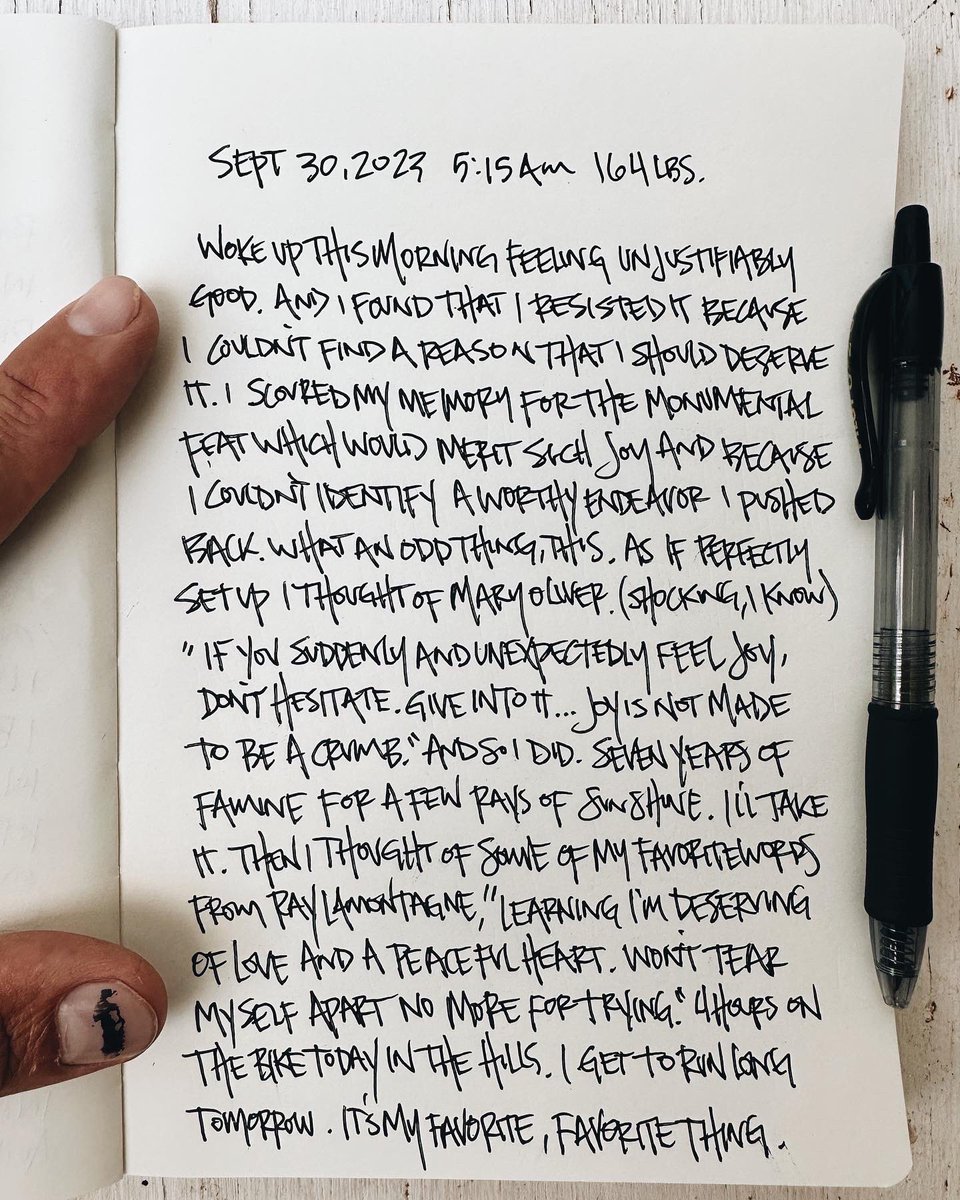 SEPT 30, 2023 5:15AM 164 LBS.
WOKE UP THIS MORNING FEELING UNJUSTIFIABLY
GOOD. AND I FOUND THAT I RESISTED IT BECAUSE
I COULDN'T FIND A REASON THAT I SHOULD DESERVE
IT. I SCOURED MY MEMORY FOR THE MONUMENTAL
FEAT WHICH WOULD MERIT SUCH JOY AND BECAUSE
I COULDN'T IDENTIFY A WORTHY ENDEAVOR I PUSHED
BACK. WHAT AN ODD THING, THIS. AS IF PERFECTLY
SET UP I THOUGHT OF MARY OLIVER. (SHOCKING, I KNOW)
"IF YOU SUDDENLY AND UNEXPECTEDLY FEEL JOY,
DON'T HESITATE. GIVE INTO IT... JOY IS NOT MADE
TO BE A CRUMB." AND SO I DID. SEVEN YEARS OF
FAMINE FOR A FEW RAYS OF SUNSHINE. I'LL TAKE
IT. THEN I THOUGHT OF SOME OF MY FAVORITE WORDS
FROM RAY LAMONTAGNE, "LEARNING I'M DESERVING
OF LOVE AND A PEACEFUL HEART. WON'T TEAR
MYSELF APART NO MORE FOR TRYING." 4 HOURS ON
THE BIKE TODAY IN THE HILLS. I GET TO RUN LONG
TOMORROW. IT'S MY FAVORITE, FAVORITE THING.